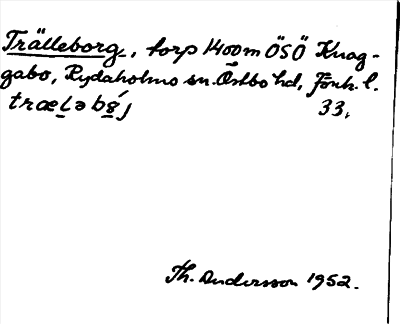 Trälleborg, torp 1400 m ÖSÖ Knag-
gabo, Rydaholms sn. Östbo hd, Jönk. l.
træḷəbǵ̣j 33.
Th. Andersson 1952.